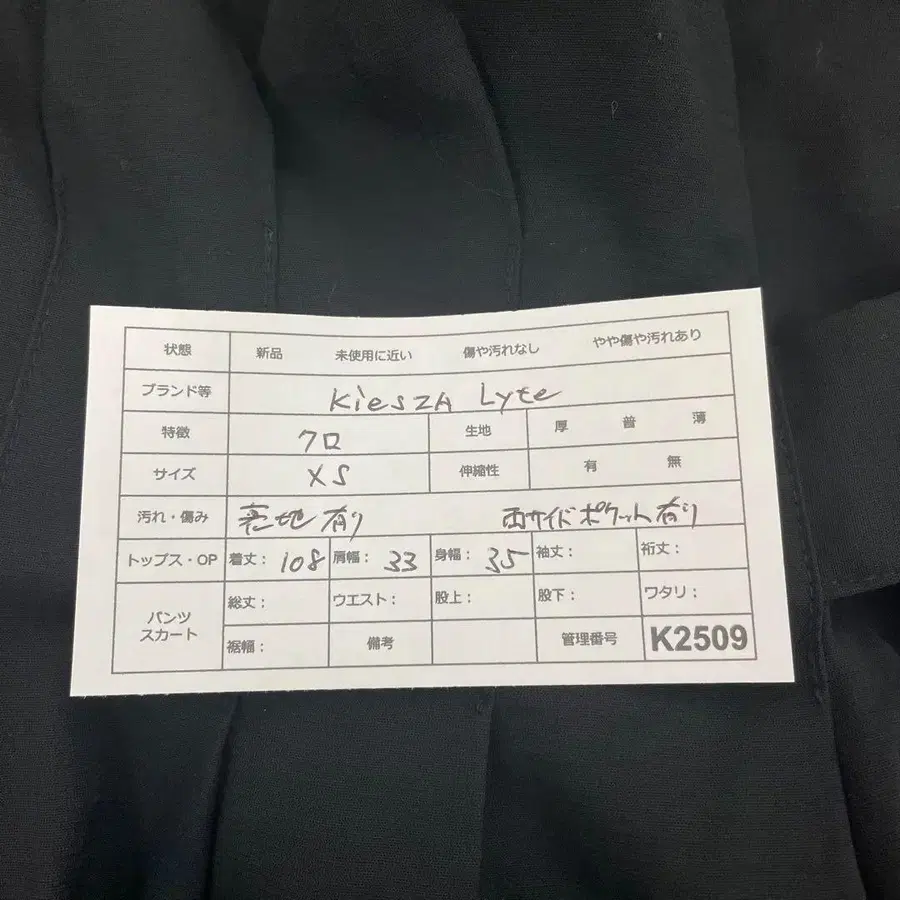 状態 新品 未使用に近い 傷や汚れなし やや傷や汚れあり
ブランド等 KieszA Lyte
特徴 クロ 生地 厚 普 薄
サイズ XS 伸縮性 有 無
汚れ・傷み 裏地有り 両サイドポケット有り
トップス・OP 着丈：108 肩幅：33 身幅：35 袖丈： 裄丈：
パンツ スカート 総丈： ウエスト： 股上： 股下： ワタリ：
裾幅： 備考 管理番号 K2509